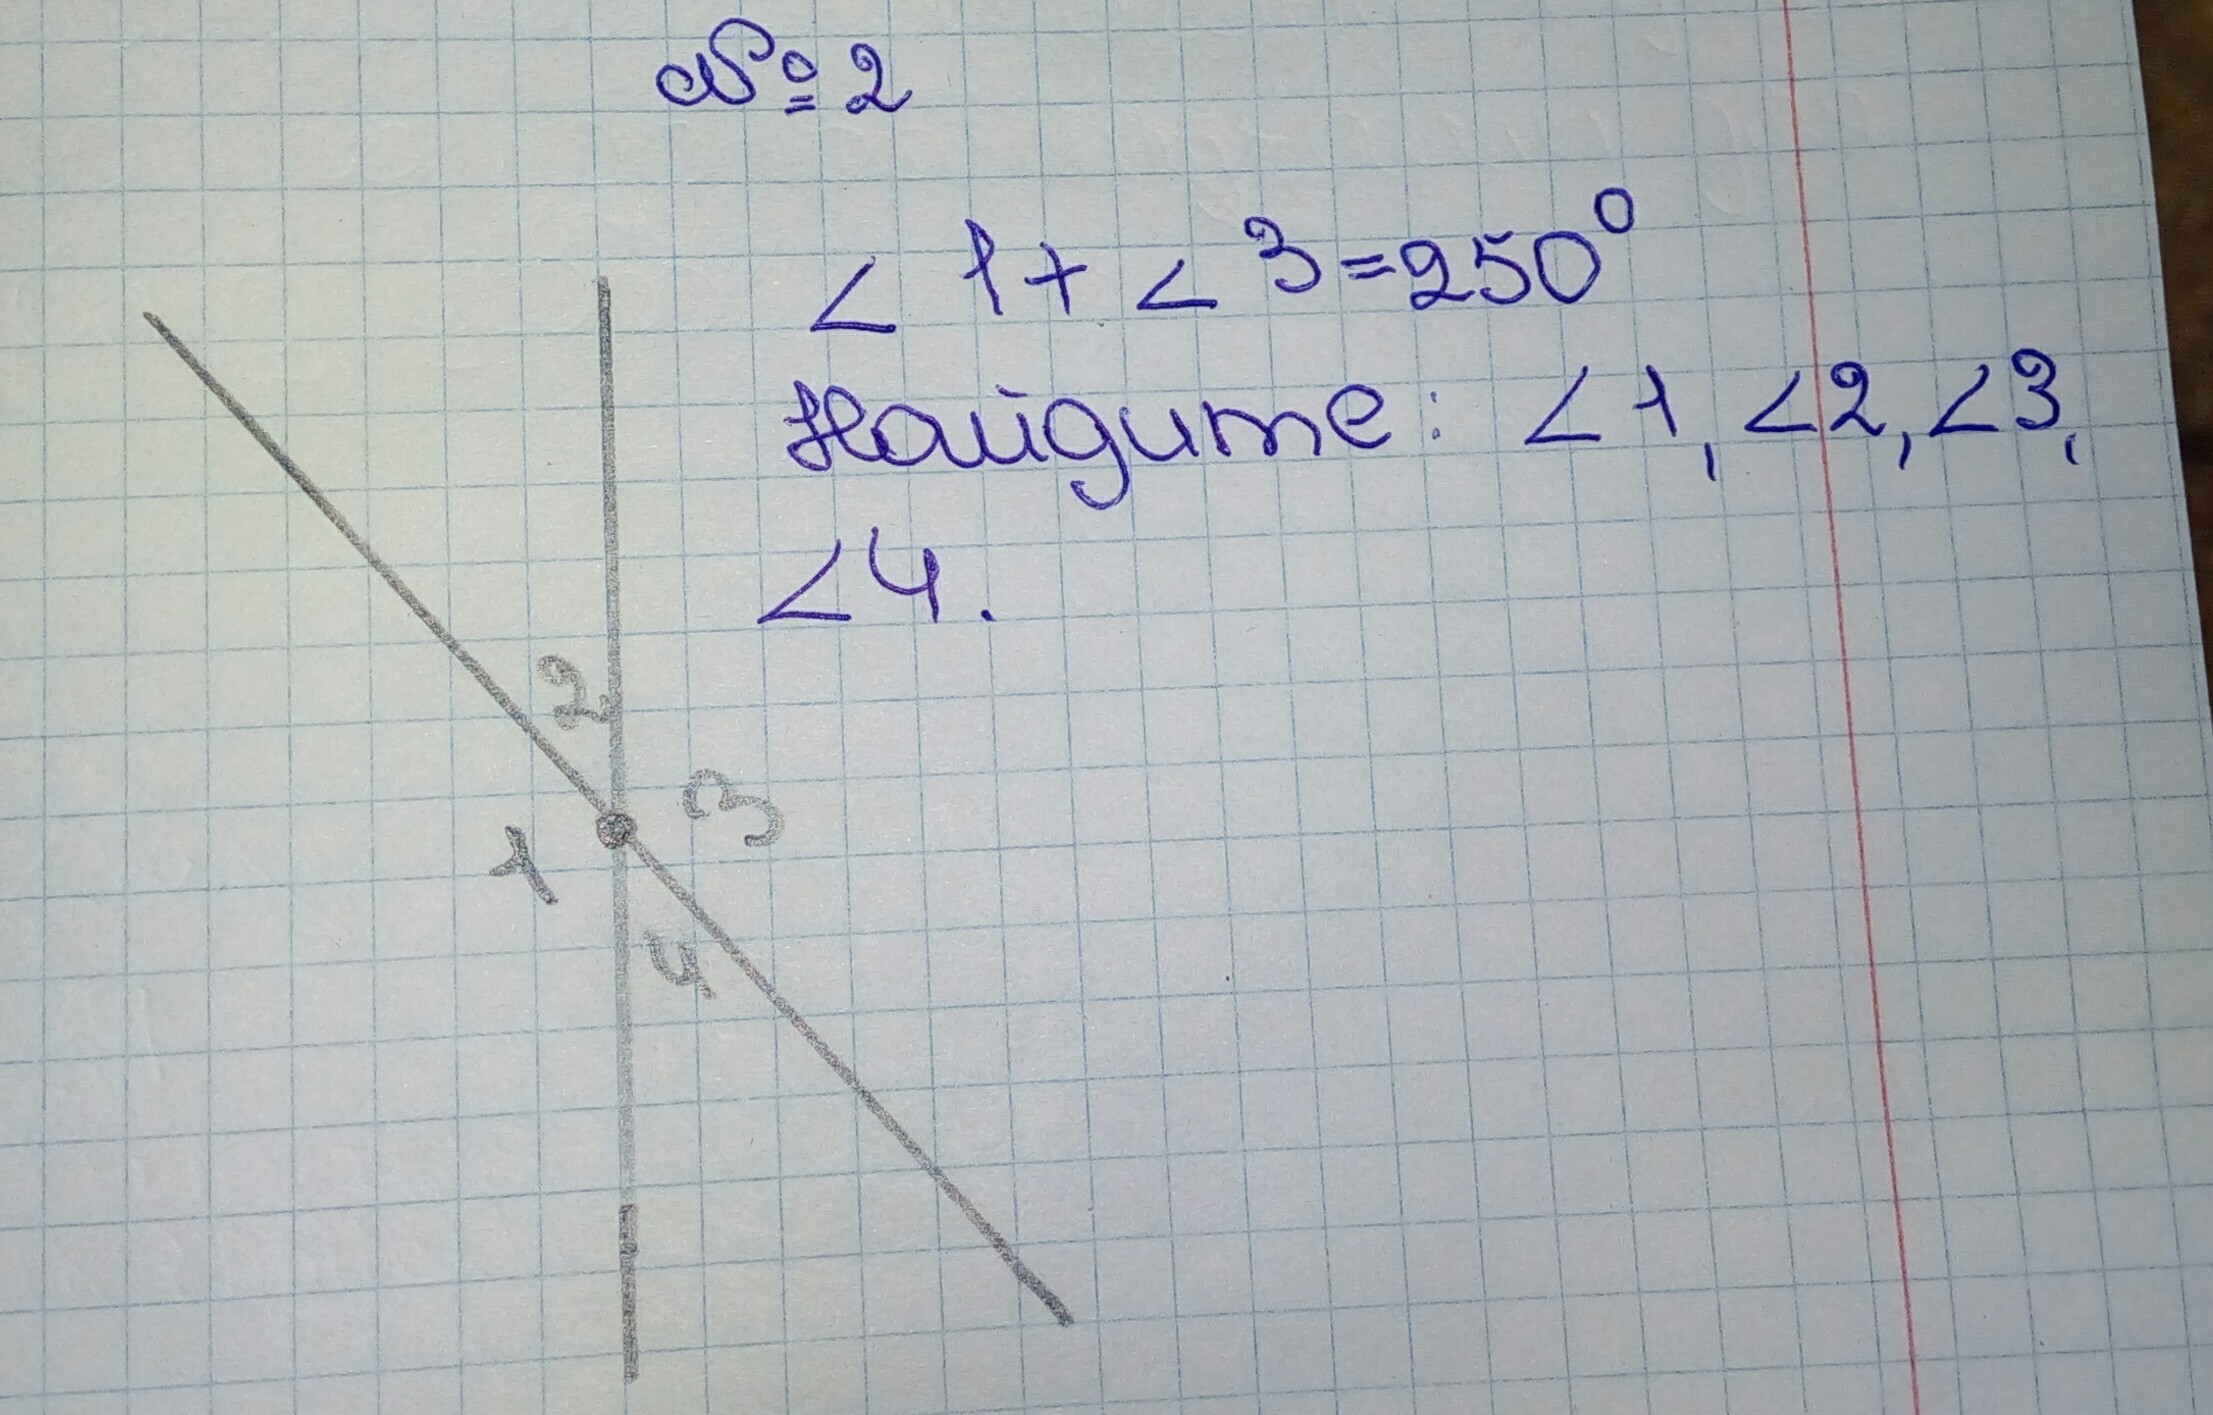 № 2
∠1 + ∠3 = 250°
Найдите: ∠1, ∠2, ∠3,
∠4.
2
3
1
4